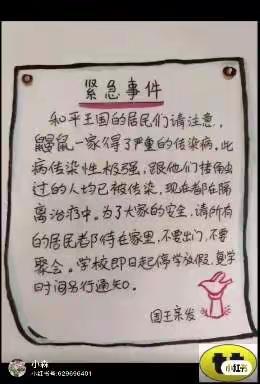 紧急事件
和平王国的居民们请注意,
鼹鼠一家得了严重的传染病。此
病传染性极强,跟他们接触
过的人均已被传染,现在都在隔
离治疗中。为了大家的安全,请所有
的居民都待在家里,不要出门,不要
聚会。学校即日起停学放假,复学
时间另行通知。
国王亲发
小森
小红书号:629696401
小红书